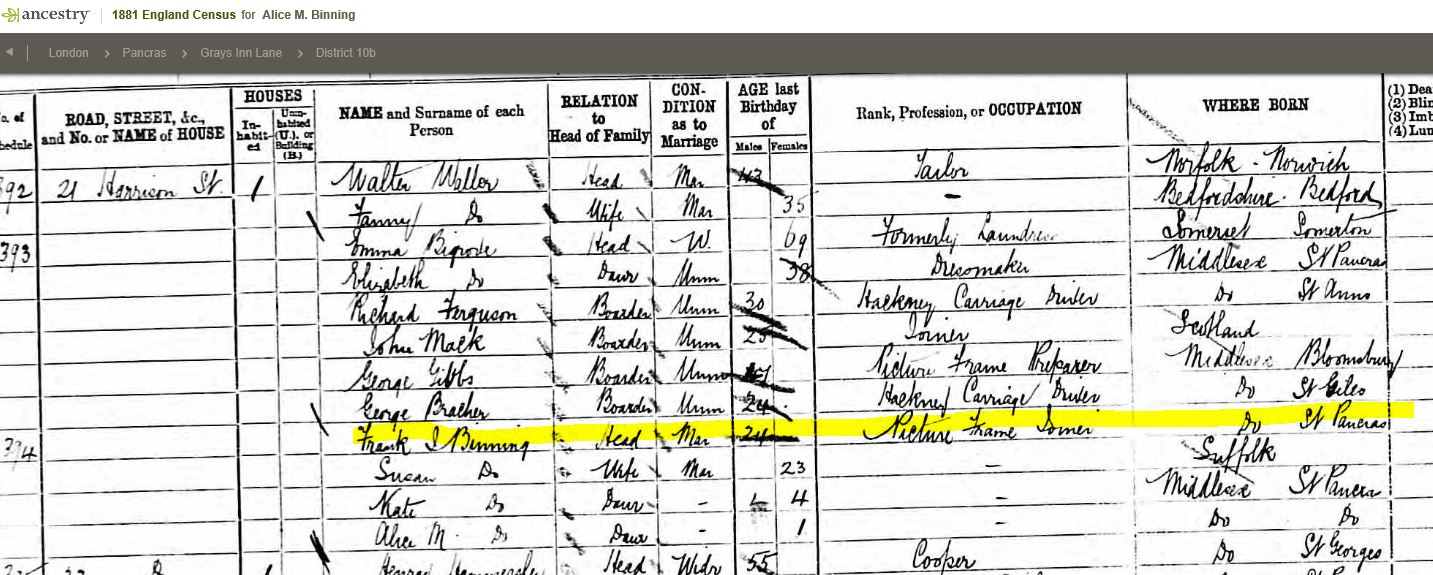 ancestry 1881 England Census for Alice M. Binning
London > Pancras > Grays Inn Lane > District 10b
No. of Schedule ROAD, STREET, &c., and No. or NAME of HOUSE HOUSES In-habit-ed Unin-habited (U.), or Building (B.) NAME and Surname of each Person RELATION to Head of Family CON-DITION as to Marriage AGE last Birthday of Males Females Rank, Profession, or OCCUPATION WHERE BORN (1) Dea (2) Blin (3) Imb (4) Lun
392 21 Harrison St. 1 Walter Waller Head Mar 43 Tailor Norfolk - Norwich
Fanny Do Wife Mar 35 - Bedfordshire. Bedford
393 Emma Bigrove Head W. 69 Formerly Laundress Somerset Somerton
Elizabeth Do Daur Unm 38 Dressmaker Middlesex St Pancras
Richard Ferguson Boarder Unm 30 Hackney Carriage Driver Do St Anns
John Mack Boarder Unm 25 Joiner Scotland
George Gibbs Boarder Unm Picture Frame Preparer Middlesex Bloomsbury
George Bracher Boarder Unm 24 Hackney Carriage Driver Do St Giles
394 Frank J Binning Head Mar 24 Picture Frame Joiner Do St Pancras
Susan Do Wife Mar 23 - Suffolk
Kate Do Daur - 4 - Middlesex St Pancras
Alice M. Do Daur - 1 - Do Do
Head Widr 55 Cooper Do St Georges